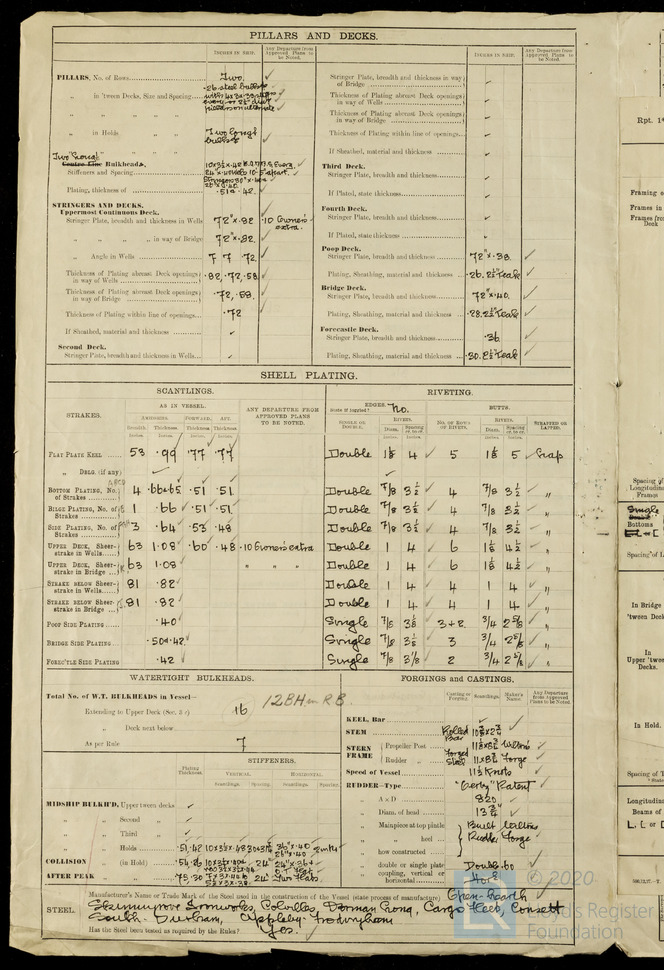 PILLARS AND DECKS.
INCHES IN SHIP.
Any Departure from Approved Plans to be Noted.
PILLARS, No. of Rows
Two.
„ in 'tween Decks, Size and Spacing
„ in Holds „ „
Two longl
bulk
Two "Longl"
Centre Line Bulkheads.
Stiffeners and Spacing
Plating, thickness of
.51 & .42
STRINGERS AND DECKS.
Uppermost Continuous Deck.
Stringer Plate, breadth and thickness in Wells 72" x .82 .10 Owner's extra.
„ „ „ „ in way of Bridge 72" x .82
„ Angle in Wells 7 7 .72
Thickness of Plating abreast Deck openings in way of Wells .82, .72, .58
Thickness of Plating abreast Deck openings in way of Bridge .72, .58
Thickness of Plating within line of openings .72
If Sheathed, material and thickness
Second Deck.
Stringer Plate, breadth and thickness in Wells
INCHES IN SHIP.
Any Departure from Approved Plans to be Noted.
Stringer Plate, breadth and thickness in way of Bridge
Thickness of Plating abreast Deck openings in way of Wells
Thickness of Plating abreast Deck openings in way of Bridge
Thickness of Plating within line of openings
If Sheathed, material and thickness
Third Deck.
Stringer Plate, breadth and thickness
If Plated, state thickness
Fourth Deck.
Stringer Plate, breadth and thickness
If Plated, state thickness
Poop Deck.
Stringer Plate, breadth and thickness 72" x .38
Plating, Sheathing, material and thickness .26. 2½" Teak
Bridge Deck.
Stringer Plate, breadth and thickness 72" x .40
Plating, Sheathing, material and thickness .28. 2½" Teak
Forecastle Deck.
Stringer Plate, breadth and thickness .36
Plating, Sheathing, material and thickness .30. 2½" Teak
SHELL PLATING.
SCANTLINGS.
RIVETING.
STRAKES.
AS IN VESSEL.
AMIDSHIPS. FORWARD. AFT.
Breadth Thickness Thickness Thickness
ANY DEPARTURE FROM APPROVED PLANS TO BE NOTED.
EDGES. State if joggled? No.
BUTTS.
SINGLE OR DOUBLE.
RIVETS.
Diam. Spacing cr. to cr.
NO. OF ROWS OF RIVETS.
RIVETS.
Diam. Spacing cr. to cr.
STRAPPED OR LAPPED.
FLAT PLATE KEEL 53 .99 .77 .77 Double 1⅛ 4 5 1⅛ 5 Strap
„ DBLG. (if any)
BOTTOM PLATING, No. of Strakes 4 .66 & .65 .51 .51 Double 7/8 3½ 4 7/8 3½ „
BILGE PLATING, No. of Strakes 1 .66 .51 .51 Double 7/8 3½ 4 7/8 3½ „
SIDE PLATING, No. of Strakes 3 .64 .53 .48 Double 7/8 3½ 4 7/8 3½ „
UPPER DECK, Sheer-strake in Wells 63 1.08 .60 .48 .10 Owner's extra Double 1 4 6 1⅛ 4½ „
UPPER DECK, Sheer-strake in Bridge 63 1.08 „ „ „ Double 1 4 6 1⅛ 4½ „
STRAKE BELOW Sheer-strake in Wells 81 .82 Double 1 4 4 1 4 „
STRAKE BELOW Sheer-strake in Bridge 81 .82 Double 1 4 4 1 4 „
POOP SIDE PLATING .40 Single 7/8 3⅛ 3+2 3/4 2⅝ „
BRIDGE SIDE PLATING .50 & .42 Single 7/8 3⅛ 3 3/4 2⅝ „
FORECTLE SIDE PLATING .42 Single 7/8 3⅛ 2 3/4 2⅝ „
WATERTIGHT BULKHEADS.
Total No. of W.T. BULKHEADS in Vessel—
12BH in R.B.
Extending to Upper Deck 16
„ Deck next below
As per Rule 7
Plating Thickness
STIFFENERS.
VERTICAL. HORIZONTAL.
Scantlings. Spacing. Scantlings. Spacing.
MIDSHIP BULKH'D, Upper tween decks
„ „ Second „
„ „ Third „
„ „ Holds
COLLISION (in Hold)
AFTER PEAK
FORGINGS and CASTINGS.
Casting or Forging. Scantlings. Maker's Name. Any Departure from Approved Plans to be Noted.
KEEL, Bar
STEM Rolled Bar
STERN FRAME
Propeller Post
Rudder „ Forged Steel
Forge
Speed of Vessel 11½ Knots
RUDDER—Type "Oertz" Patent
„ A x D 820
„ Diam. of head 13¾
„ Mainpiece at top pintle Built
„ „ heel Rudder Forge
„ how constructed
„ double or single plate Double .60
„ coupling, vertical or horizontal Hor'l
STEEL.
Manufacturer's Name or Trade Mark of the Steel used in the construction of the Vessel (state process of manufacture) Open-hearth
Skinningrove Ironworks, Colvilles, Dorman Long, Cargo Fleet, Consett
South Durham, Appleby-Frodingham.
Has the Steel been tested as required by the Rules? Yes.
© 2020
Lloyd's Register
Foundation
Rpt. 1*
Framing of
Frames in
Frames from
Deck
Spacing of
Longitudinal
Frames
Single
Bottoms
Spacing of L
In Bridge
'tween Deck
In
Upper 'tween
Decks.
In Hold.
Spacing of T
Longitudinal
Beams of
L. [ or [